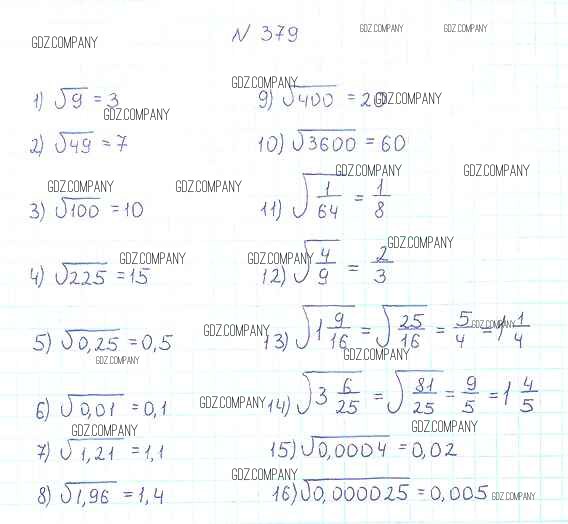 N 379
GDZ.COMPANY GDZ.COMPANY GDZ.COMPANY
GDZ.COMPANY
1) √9 = 3
GDZ.COMPANY
2) √49 = 7
GDZ.COMPANY GDZ.COMPANY
3) √100 = 10
GDZ.COMPANY
4) √225 = 15
GDZ.COMPANY
5) √0,25 = 0,5
GDZ.COMPANY
GDZ.COMPANY
6) √0,01 = 0,1
GDZ.COMPANY
7) √1,21 = 1,1
8) √1,96 = 1,4
9) √400 = 20
GDZ.COMPANY
10) √3600 = 60
GDZ.COMPANY GDZ.COMPANY
11) √1/64 = 1/8
GDZ.COMPANY
GDZ.COMPANY
12) √4/9 = 2/3
GDZ.COMPANY
13) √1 9/16 = √25/16 = 5/4 = 1 1/4
GDZ.COMPANY
14) √3 6/25 = √81/25 = 9/5 = 1 4/5
GDZ.COMPANY
15) √0,0004 = 0,02
GDZ.COMPANY
16) √0,000025 = 0,005
GDZ.COMPANY